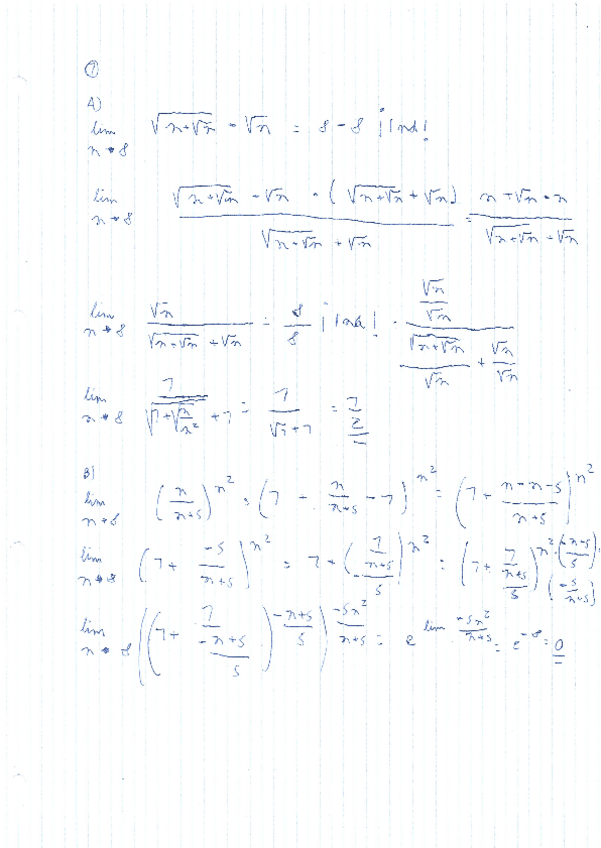 ①
A)
lim n→∞ √(n+√n) - √n = ∞ - ∞ ¡Ind!
lim n→∞ (√(n+√n) - √n · (√(n+√n) + √n)) / (√(n+√n) + √n) = (n+√n - n) / (√(n+√n) - √n)
lim n→∞ √n / (√(n+√n) + √n) = ∞/∞ ¡Ind! · (√n/√n) / (√(n+√n)/√n + √n/√n)
lim n→∞ 1 / (√(1+√(n/n²)) + 1) = 1 / (√1 + 1) = 1/2
B)
lim n→∞ (n/(n+5))^n² = (1 + n/(n+5) - 1)^n² = (1 + (n-n-5)/(n+5))^n²
lim n→∞ (1 + -5/(n+5))^n² = 1 + (1/(-(n+5)/5))^n² = (1 + 1/((n+5)/5))^(n²·(-(n+5)/5)(-5/(n+5)))
lim n→∞ ((1 + 1/((-n+5)/5))^((-n+5)/5))^(-5n²/(n+5)) = e^(lim -5n²/(n+5)) = e^-∞ = 0